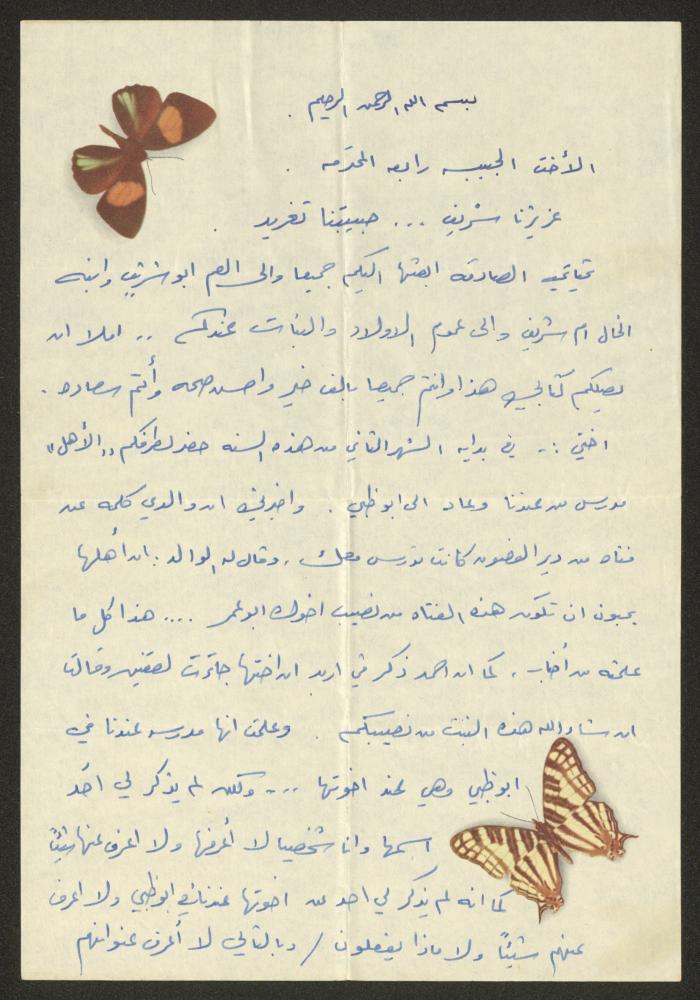 بسم الله الرحمن الرحيم .
الأخت الحبيبه رابعه المحترمه .
عزيزنا شريف ... حبيبتنا تغريد .
تحياتي الصادقه ابعثها اليكم جميعا والى العم ابو شريف وابنه
الخال ام شريف والى عموم الاولاد والبنات عندكم .. املا ان
يصلكم كتابي هذا وانتم جميعا بألف خير واحسن صحه وأتم سعاده .
اختي .. في بدايه الشهر الثاني من هذه السنه حضر لطرفكم "الأهل"
مدرس من عندنا وعاد الى ابوظبي . واخبرني ان والدي كلمه عن
فتاه من دير الغصون كانت تدرس معك ، وقال له الوالد : ان أهلها
يحبون ان تكون هذه الفتاه من نصيب اخوك ابو عمر .... هذا كل ما
علمته من أخبار ، كما ان احمد ذكر في اربد ان اختها جاءت وقالت
ان شاء الله هذه البنت من نصيبكم . وعلمت انها مدرسه عندنا في
ابوظبي وهي عند اخوتها .... ولكن لم يذكر لي أحد
اسمها وانا شخصيا لا أعرفها ولا اعرف عنها شيئاً
كما انه لم يذكر لي احد عن اخوتها عندنا في ابوظبي ولا اعرف
عنهم شيئاً ولا ماذا يفعلون / وبالتالي لا أعرف عنوانهم